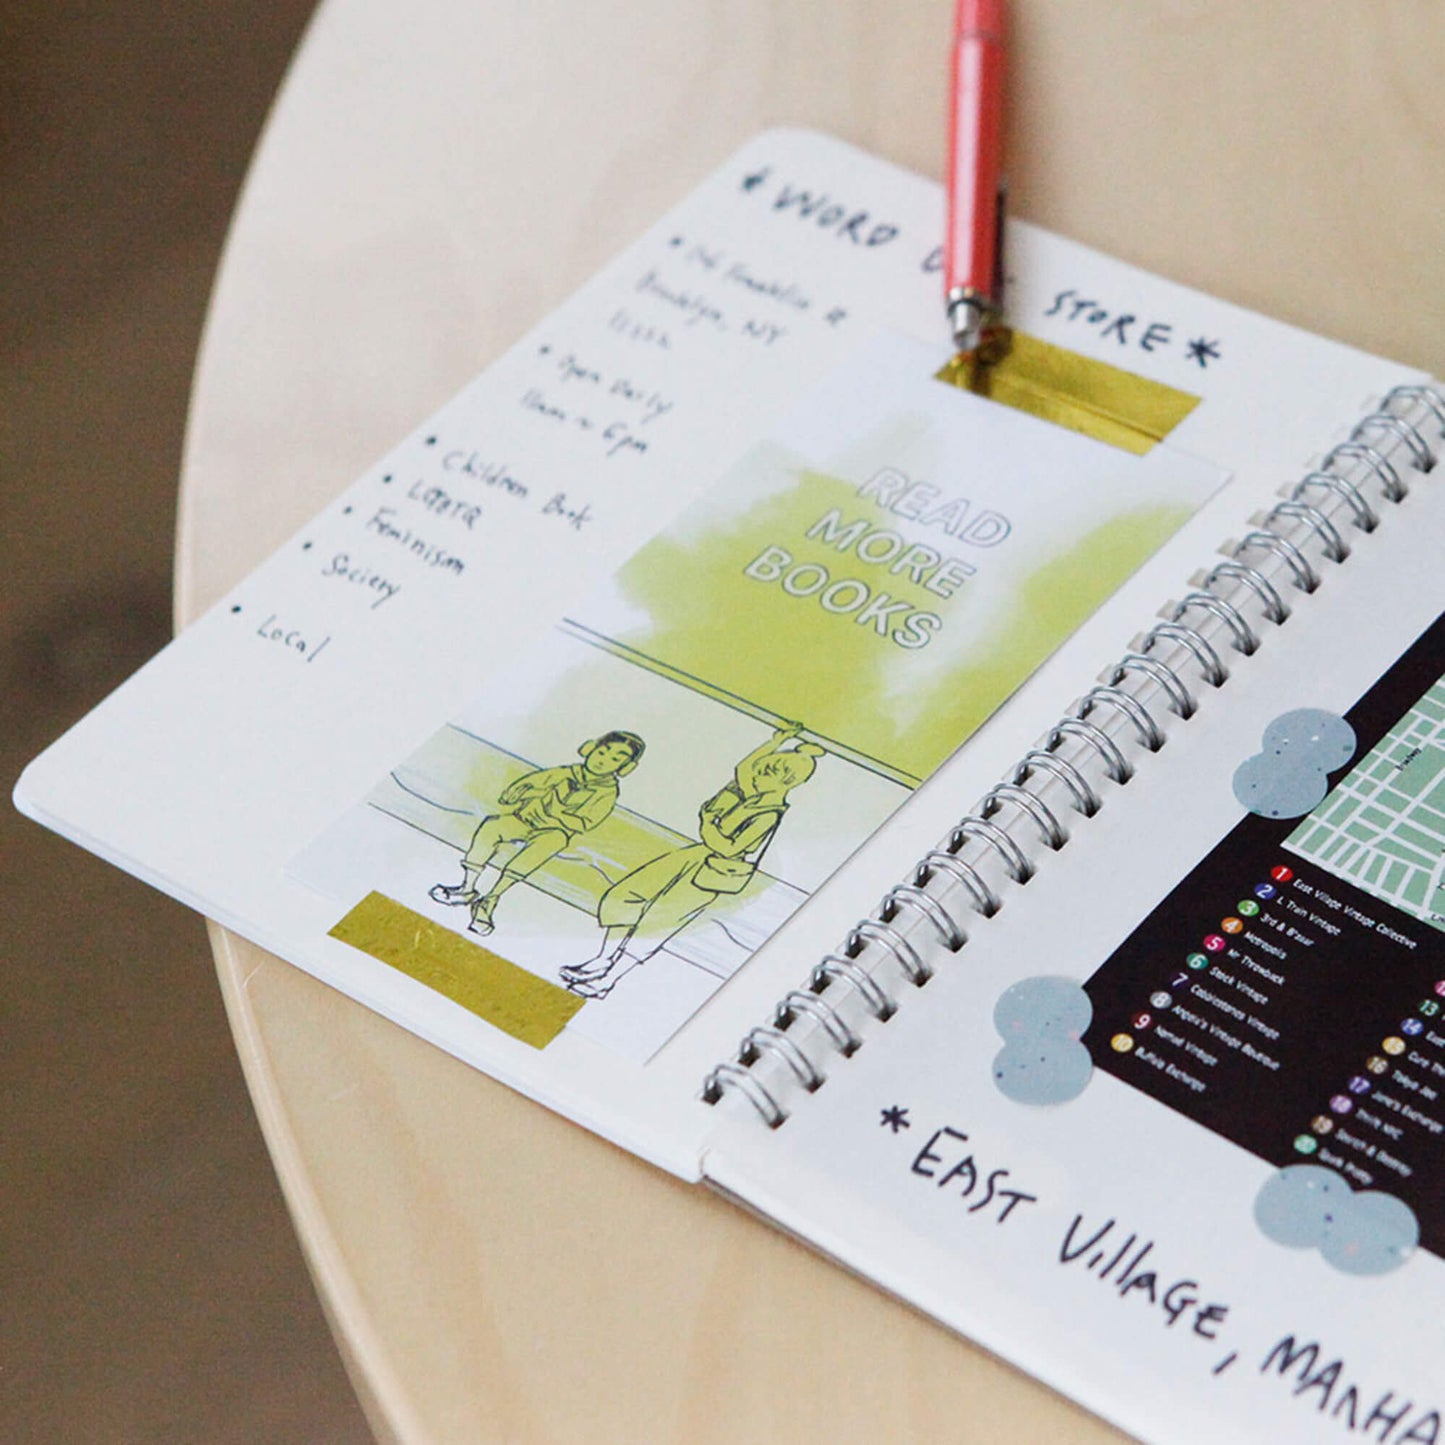 * WORD
STORE *
• Franklin St
Brooklyn, NY
11222
• Open Daily
11am ~ 6pm
• Children Book
• LGBTQ
• Feminism
• Society
• Local
READ
MORE
BOOKS
1 East Village Vintage Collective
2 L Train Vintage
3 3rd & B'zaar
4 Metropolis
5 Mr Throwback
6 Stock Vintage
7 Cobblestones Vintage
8 Angela's Vintage Boutique
9 Nomad Vintage
10 Buffalo Exchange
13
14
15
16 Tokyo Joe
17 Jane's Exchange
18 Thrift NYC
19 Search & Destroy
20
* EAST Village, MANHA